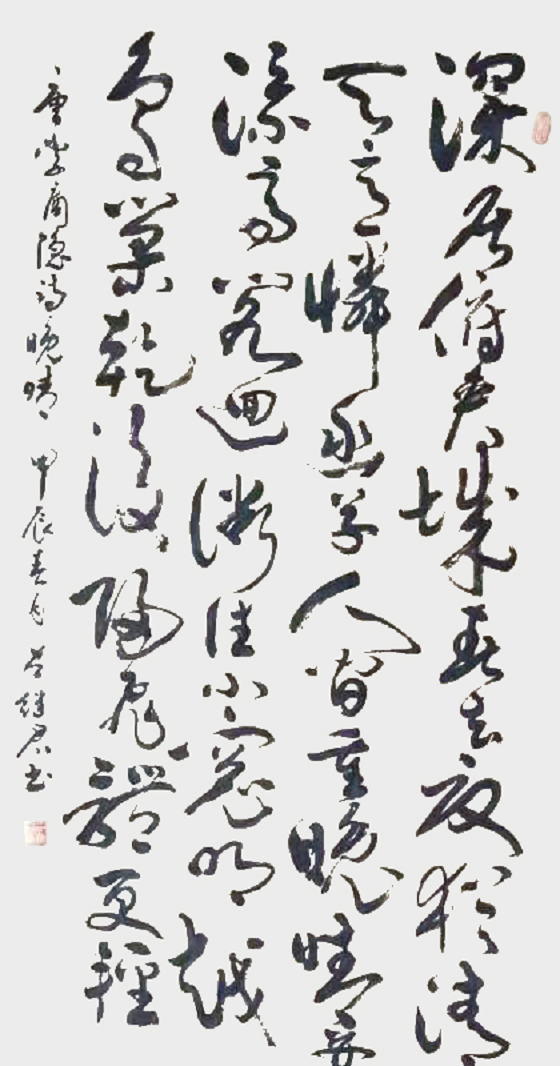 深居俯夹城春去夏犹清
天意憐幽草人间重晚晴并
添高阁迥微注小窗明越
鸟巢乾後归飛體更輕
唐李商隐诗晚晴 甲辰春月 书